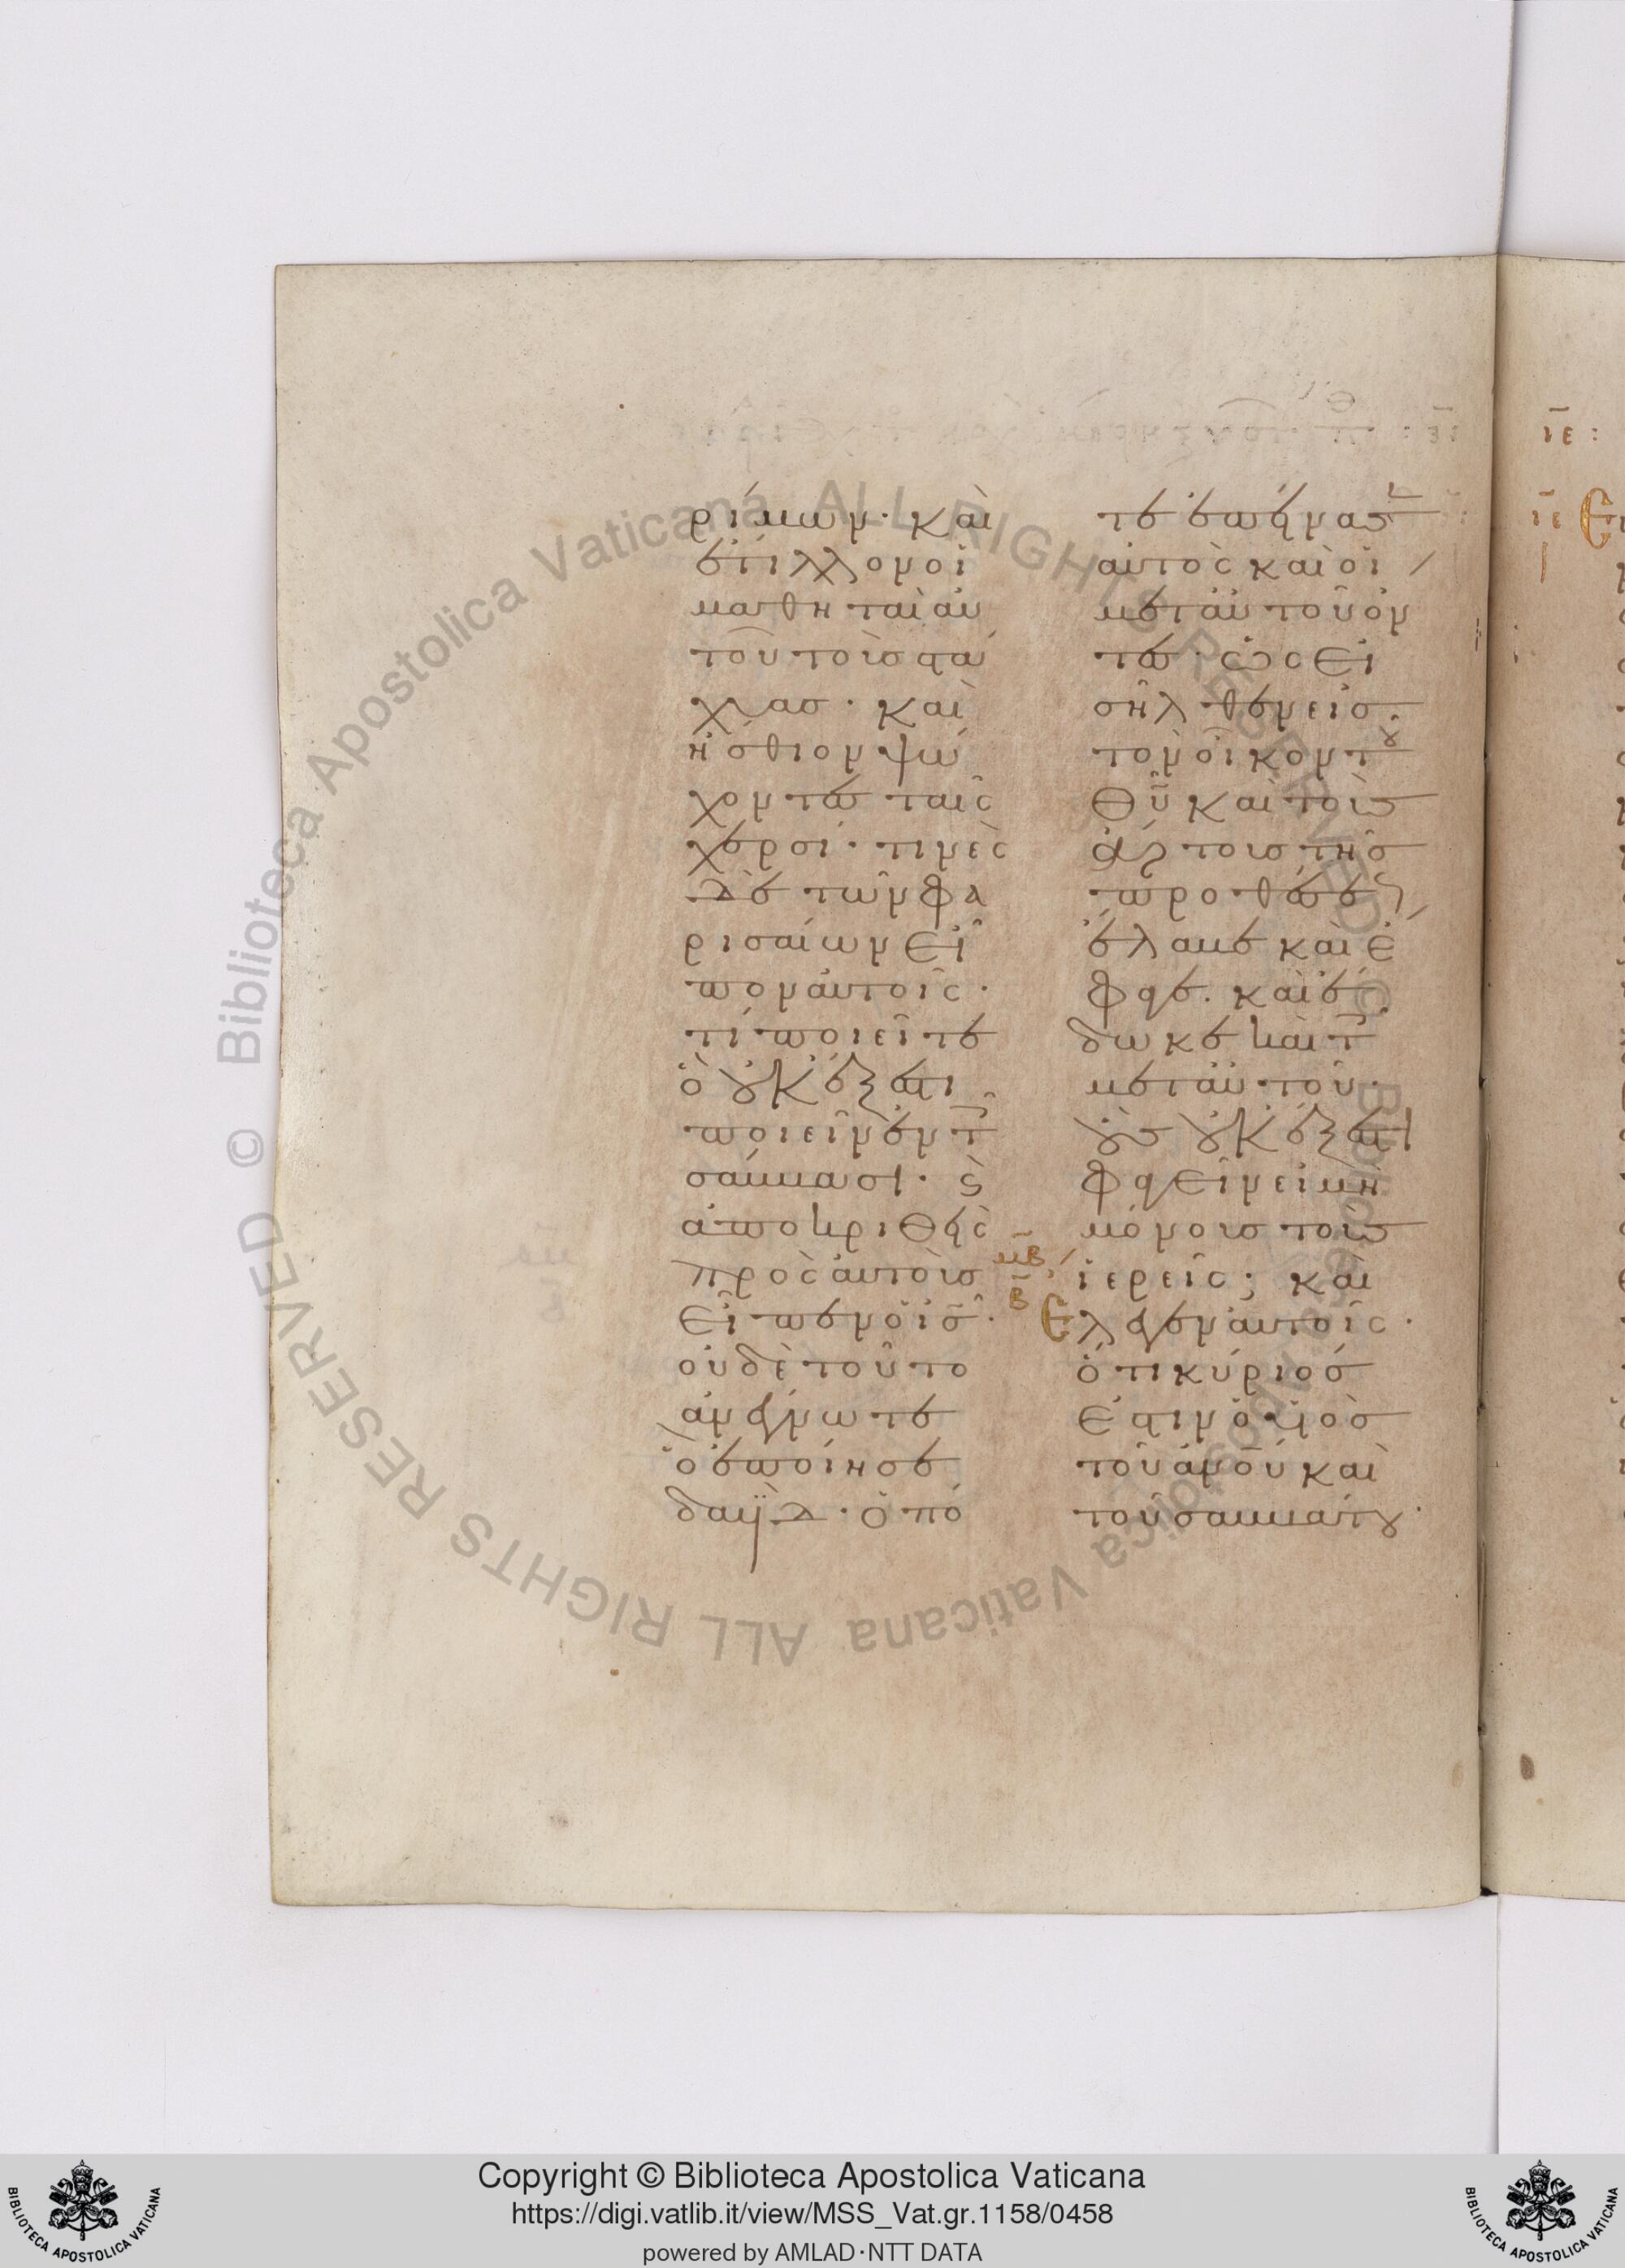 ρίμων· καὶ
ἔτιλλον οἱ
μαθηταὶ αὐ
τοῦ τοὺς στά
χυας· καὶ
ἤσθιον ψώ
χοντες ταῖς
χερσί· τινὲς
δὲ τῶν φα
ρισαίων εἶ
πον αὐτοῖς·
τί ποιεῖτε
ὃ οὐκ ἔξεστι
ποιεῖν ἐν τοῖς
σάββασι· καὶ
ἀποκριθεὶς
πρὸς αὐτοὺς
εἶπεν ὁ ις̅·
οὐδὲ τοῦτο
ἀνέγνωτε
ὃ ἐποίησε
δαδ̅· ὁπό
τε ἐπείνασεν
αὐτὸς καὶ οἱ
μετ αὐτοῦ ὄν
τες· ὡς εἰ
σῆλθεν εἰς
τὸν οἶκον τοῦ
θυ̅ καὶ τοὺς
ἄρτους τῆς
προθέσεως
ἔλαβε καὶ ἔ
φαγε· καὶ ἔ
δωκε καὶ τοῖς
μετ αὐτοῦ·
οὓς οὐκ ἔξεστι
φαγεῖν εἰ μὴ
μόνους τοὺς
μβ̅
β̅
ἱερεῖς; καὶ
ἔλεγεν αὐτοῖς·
ὅτι κύριός
ἐστιν ὁ υἱὸς
τοῦ ανου̅ καὶ
τοῦ σαββάτου·
© Biblioteca Apostolica Vaticana ALL RIGHTS RESERVED © Biblioteca Apostolica Vaticana ALL RIGHTS RESERVED
ιε̅ :
ιε̅ Ε
BIBLIOTECA APOSTOLICA VATICANA
Copyright © Biblioteca Apostolica Vaticana
https://digi.vatlib.it/view/MSS_Vat.gr.1158/0458
powered by AMLAD·NTT DATA
BIBLIOTECA APOSTOLICA VATICANA